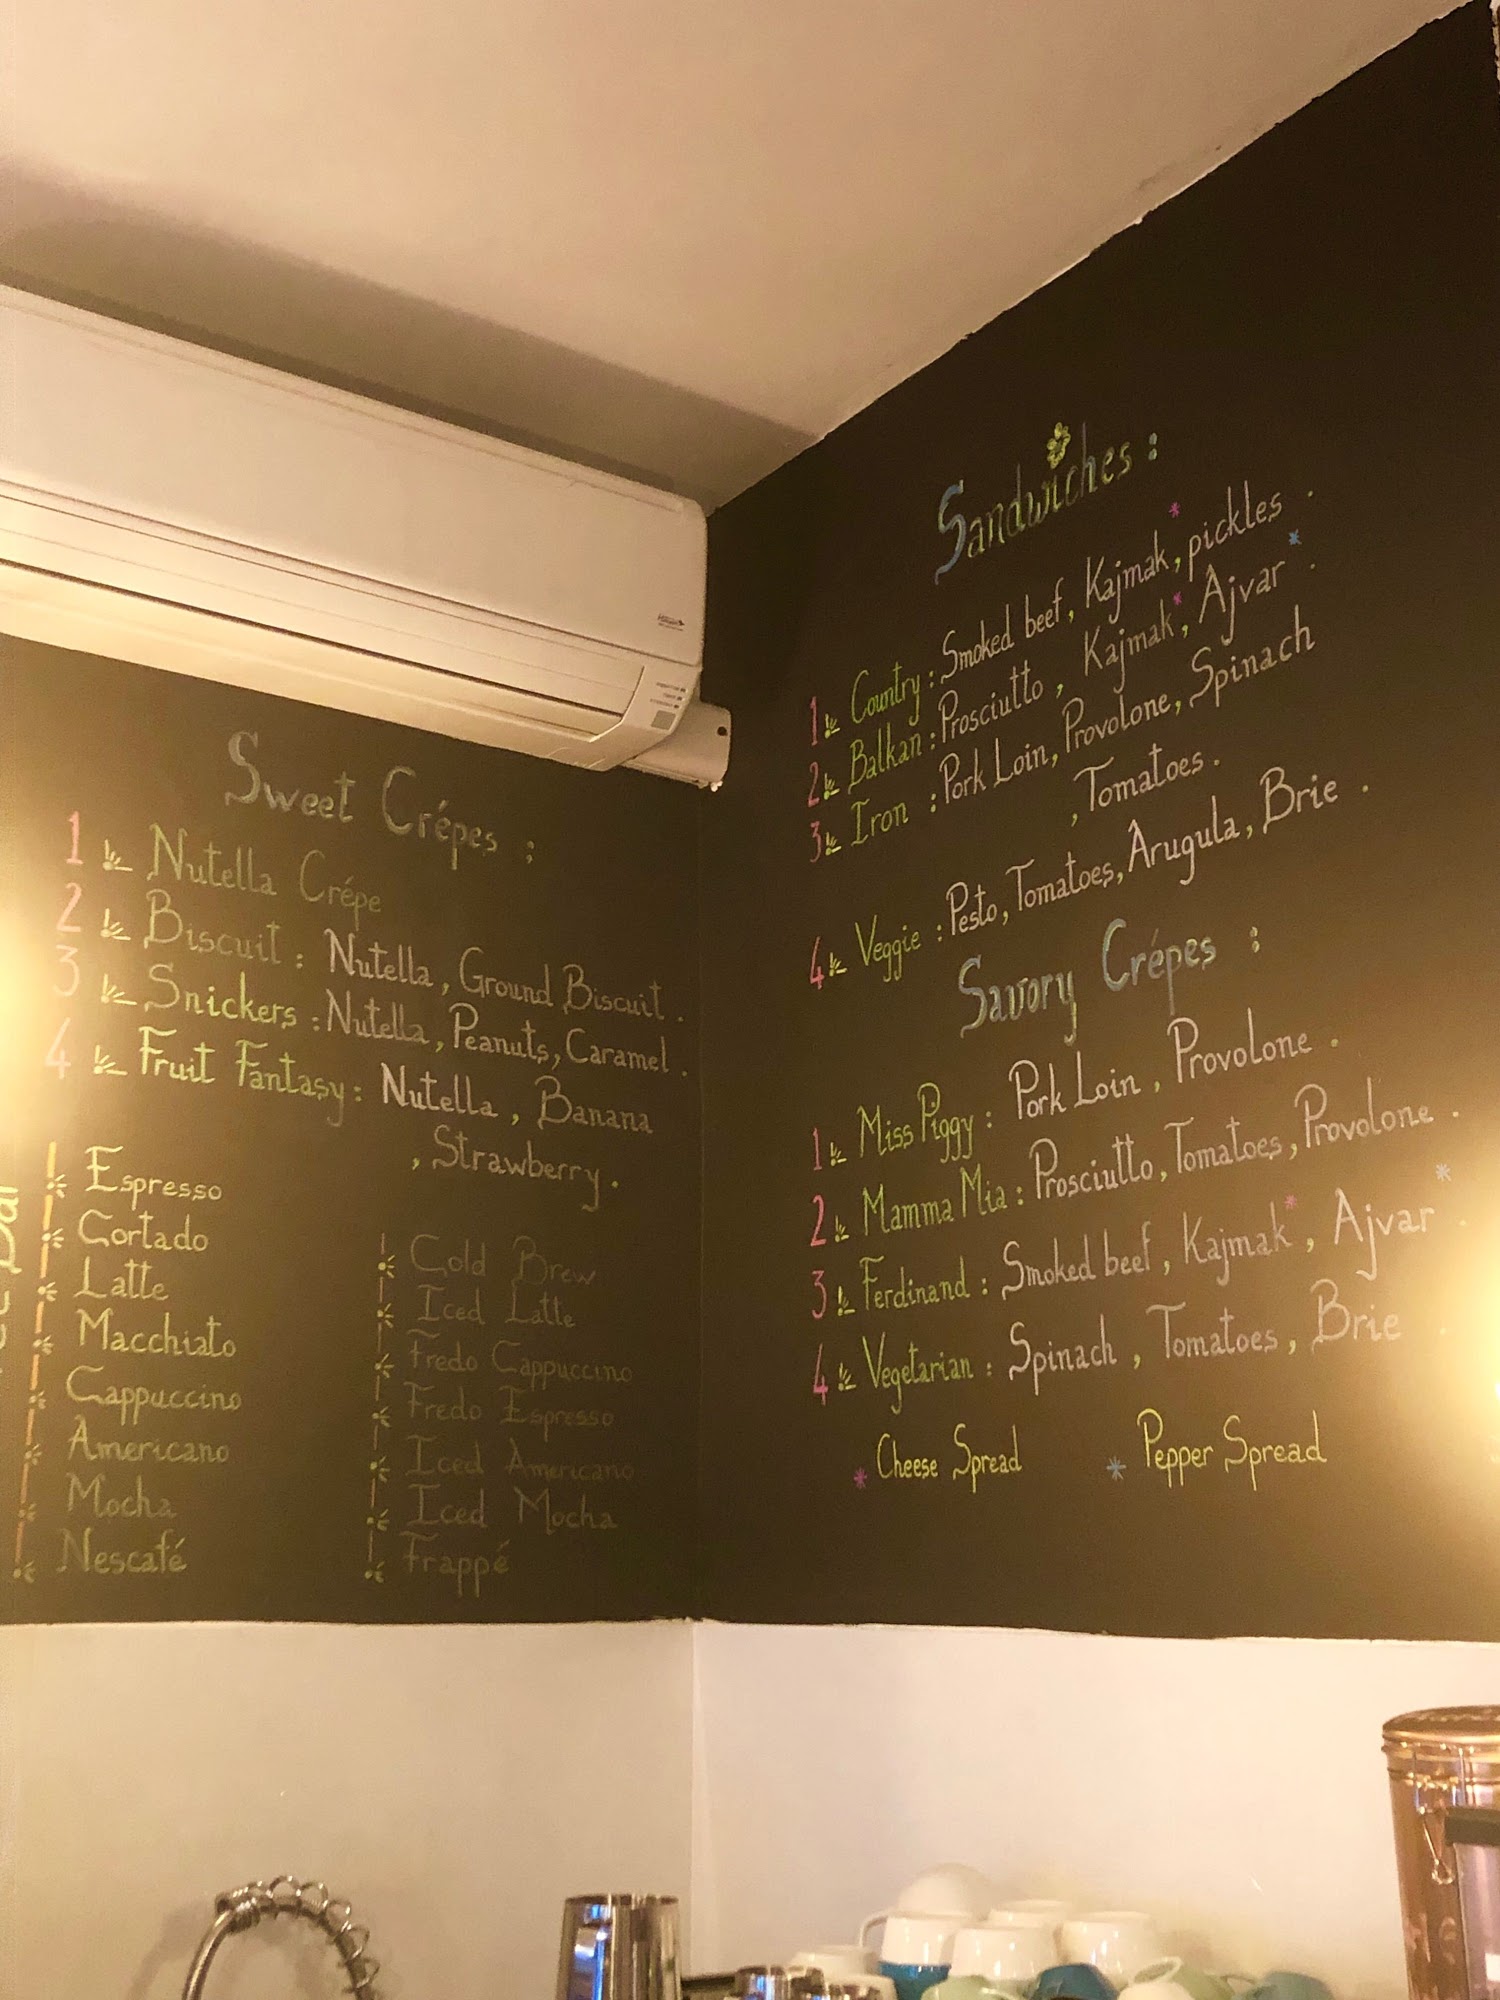 Sweet Crépes :
1 Nutella Crépe
2 Biscuit : Nutella, Ground Biscuit.
3 Snickers : Nutella, Peanuts, Caramel.
4 Fruit Fantasy : Nutella, Banana
, Strawberry.
Espresso
Cortado
Latte
Macchiato
Cappuccino
Americano
Mocha
Nescafé
Cold Brew
Iced Latte
Fredo Cappuccino
Fredo Espresso
Iced Americano
Iced Mocha
Frappé
Sandwiches :
1 Country : Smoked beef, Kajmak*, pickles.
2 Balkan : Prosciutto, Kajmak*, Ajvar*.
3 Iron : Pork Loin, Provolone, Spinach
, Tomatoes.
4 Veggie : Pesto, Tomatoes, Arugula, Brie.
Savory Crépes :
1 Miss Piggy : Pork Loin, Provolone.
2 Mamma Mia : Prosciutto, Tomatoes, Provolone.
3 Ferdinand : Smoked beef, Kajmak*, Ajvar*.
4 Vegetarian : Spinach, Tomatoes, Brie.
* Cheese Spread * Pepper Spread